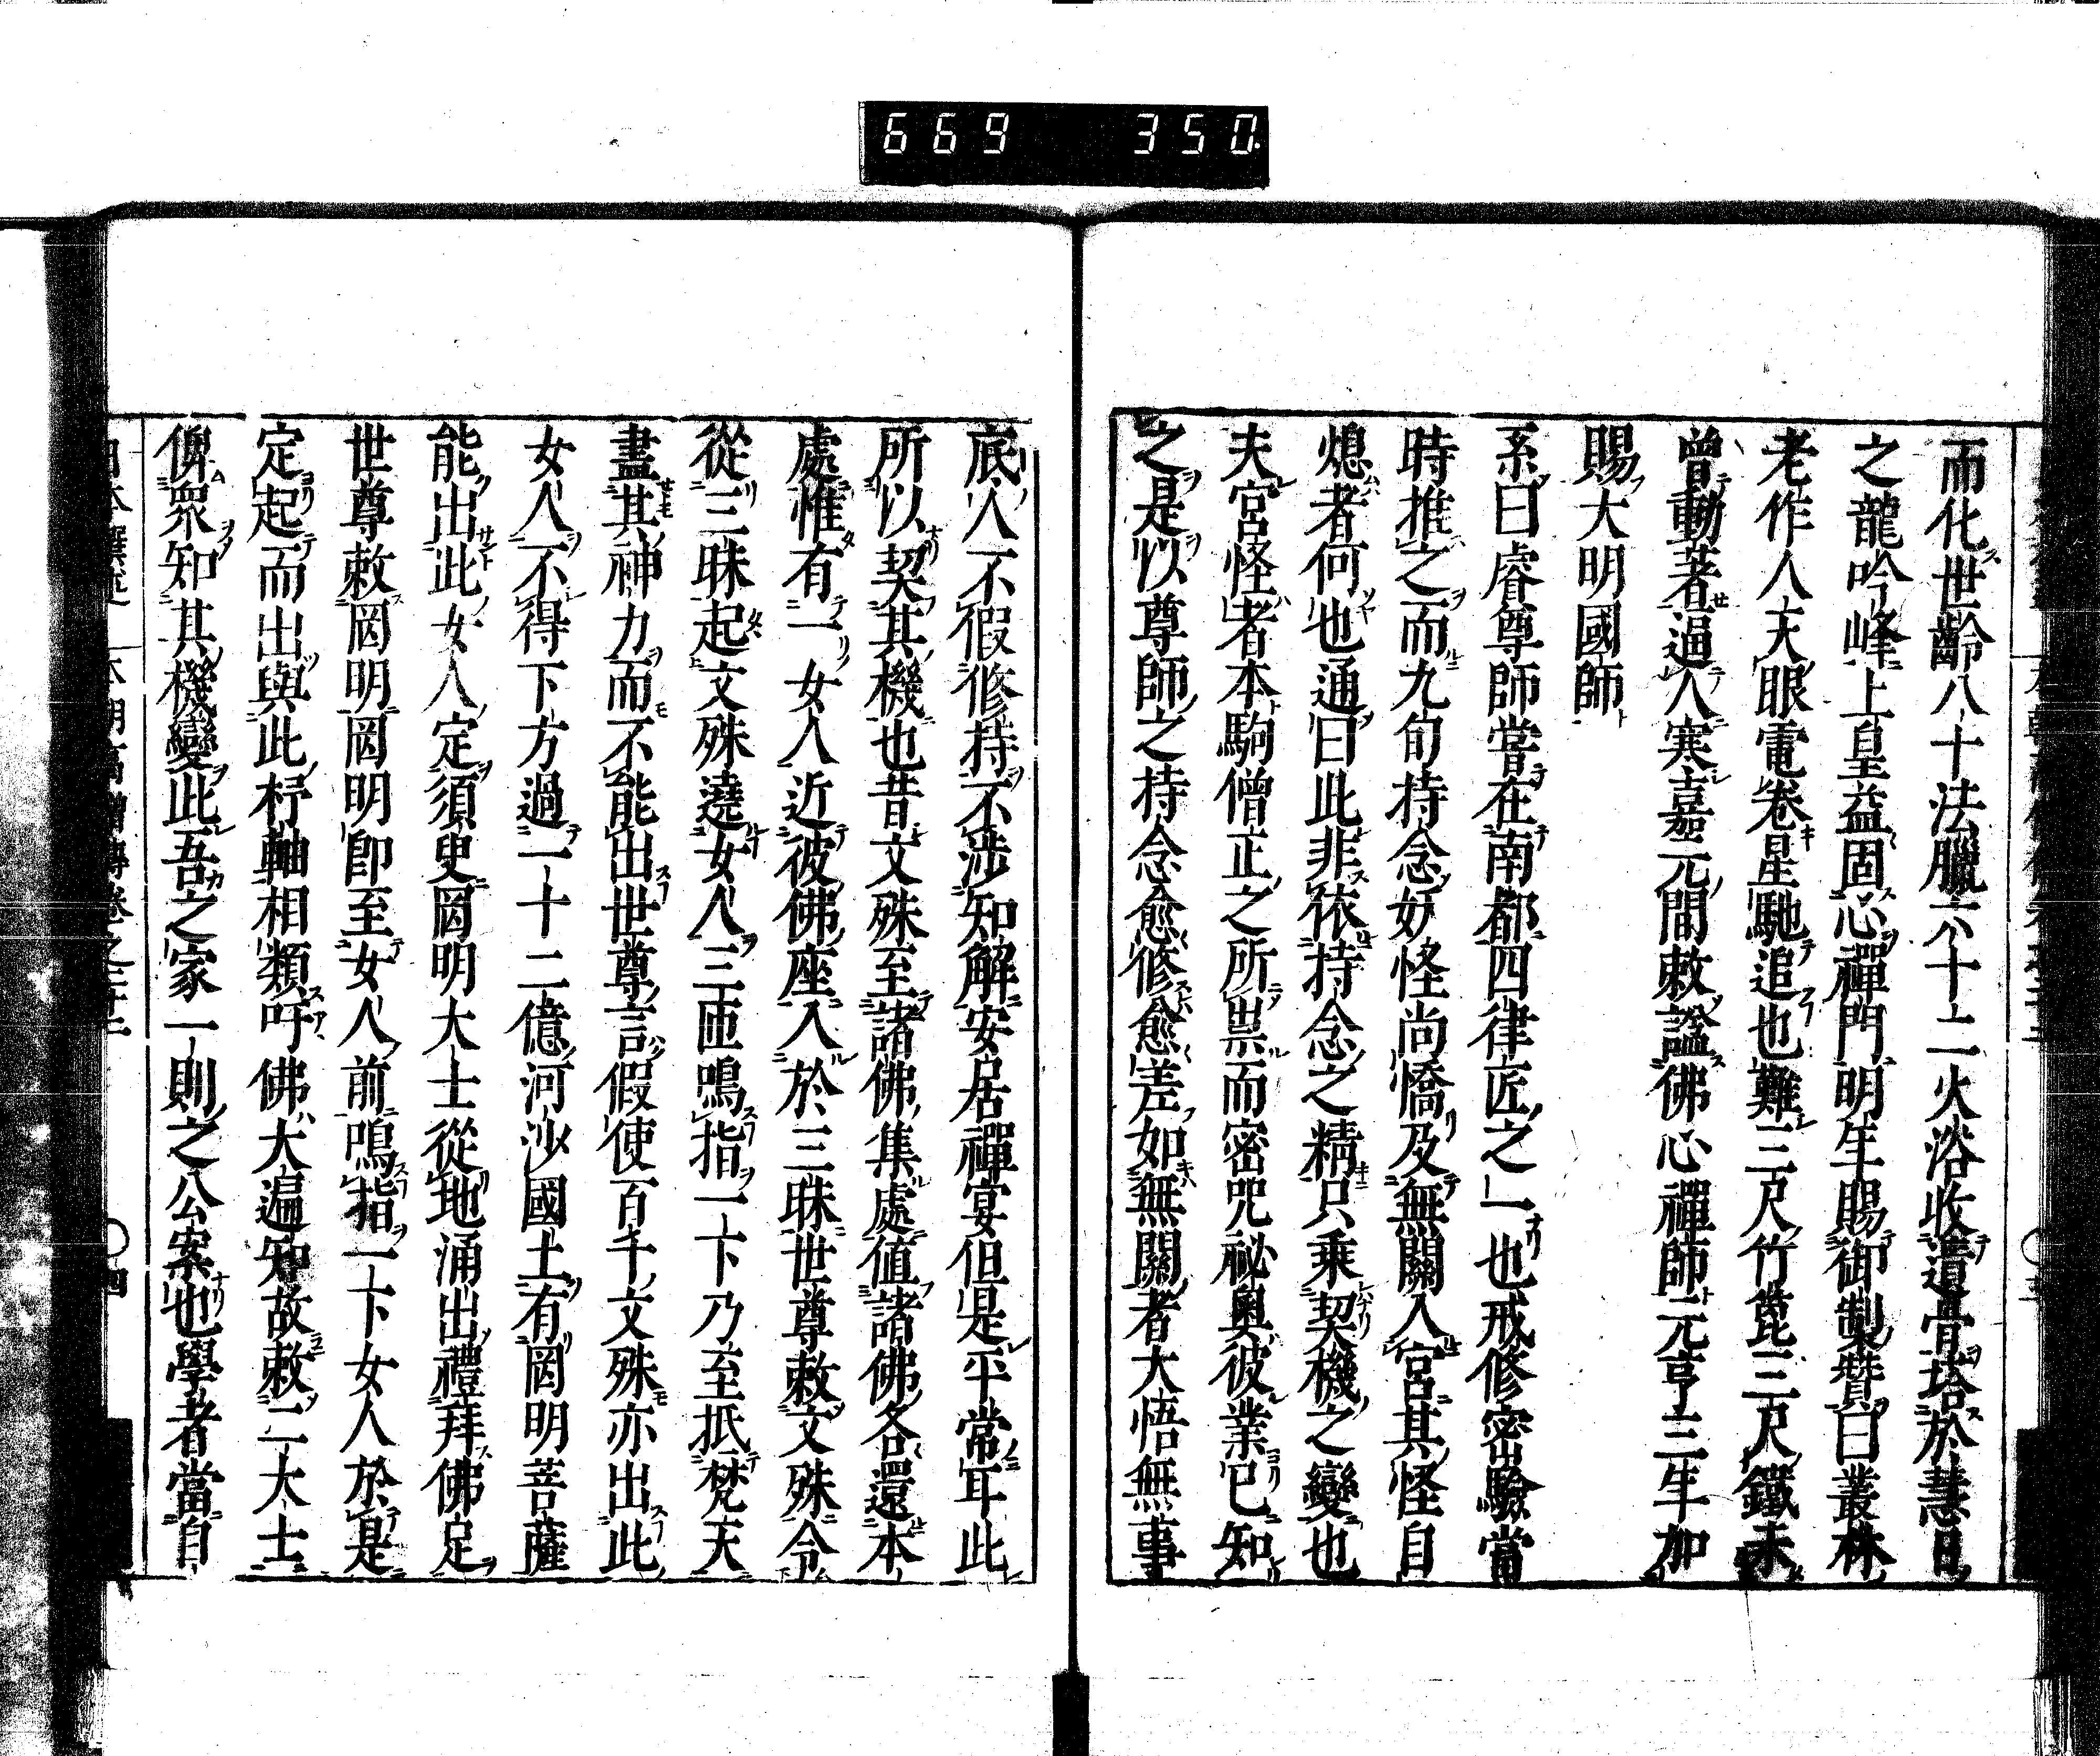 669 350
而化世齡八十法臘六十二火浴收遺骨塔於慧日
之龍吟峰上皇益固心禪門明年賜御製贊曰叢林
老作人天眼電卷星馳追也難三尺竹篦三尺鐵未
曾動著逼人寒嘉元間敕謚佛心禪師元亨三年加
賜大明國師
系曰睿尊師當在南都四律匠之一也戒修密驗當
時推之而九旬持念妖怪尚憍及無關入宮其怪自
熄者何也通曰此非依持念之精只乘契機之變也
夫宮怪者本駒僧正之所祟而密咒祕奧彼業已知
之是以尊師之持念愈修愈差如無關者大悟無事
底人不假修持不涉知解安居禪宴但是平常耳此
所以契其機也昔文殊至諸佛集處值諸佛各還本
處惟有一女人近彼佛座入於三昧世尊敕文殊令
從三昧起文殊遶女人三匝鳴指一下乃至抵梵天
盡其神力而不能出世尊言假使百千文殊亦出此
女人不得下方過一十二億河沙國土有罔明菩薩
能出此女人定須臾罔明大士從地涌出禮拜佛足
世尊敕罔明罔明即至女人前鳴指一下女人於是
定起而出與此杼軸相類吁佛大遍知故敕二大士
俾衆知其機變此吾之家一則之公案也學者當自
本朝高僧傳卷之
四